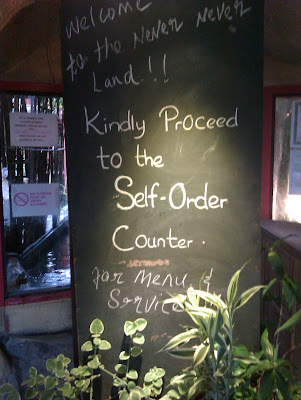 Welcome
to the Never Never
Land!!
Kindly Proceed
to the
Self-Order
Counter.
for Menu &
Service